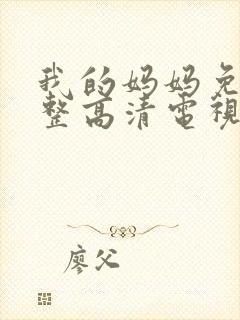 我的妈妈免
整高清電視
廖父